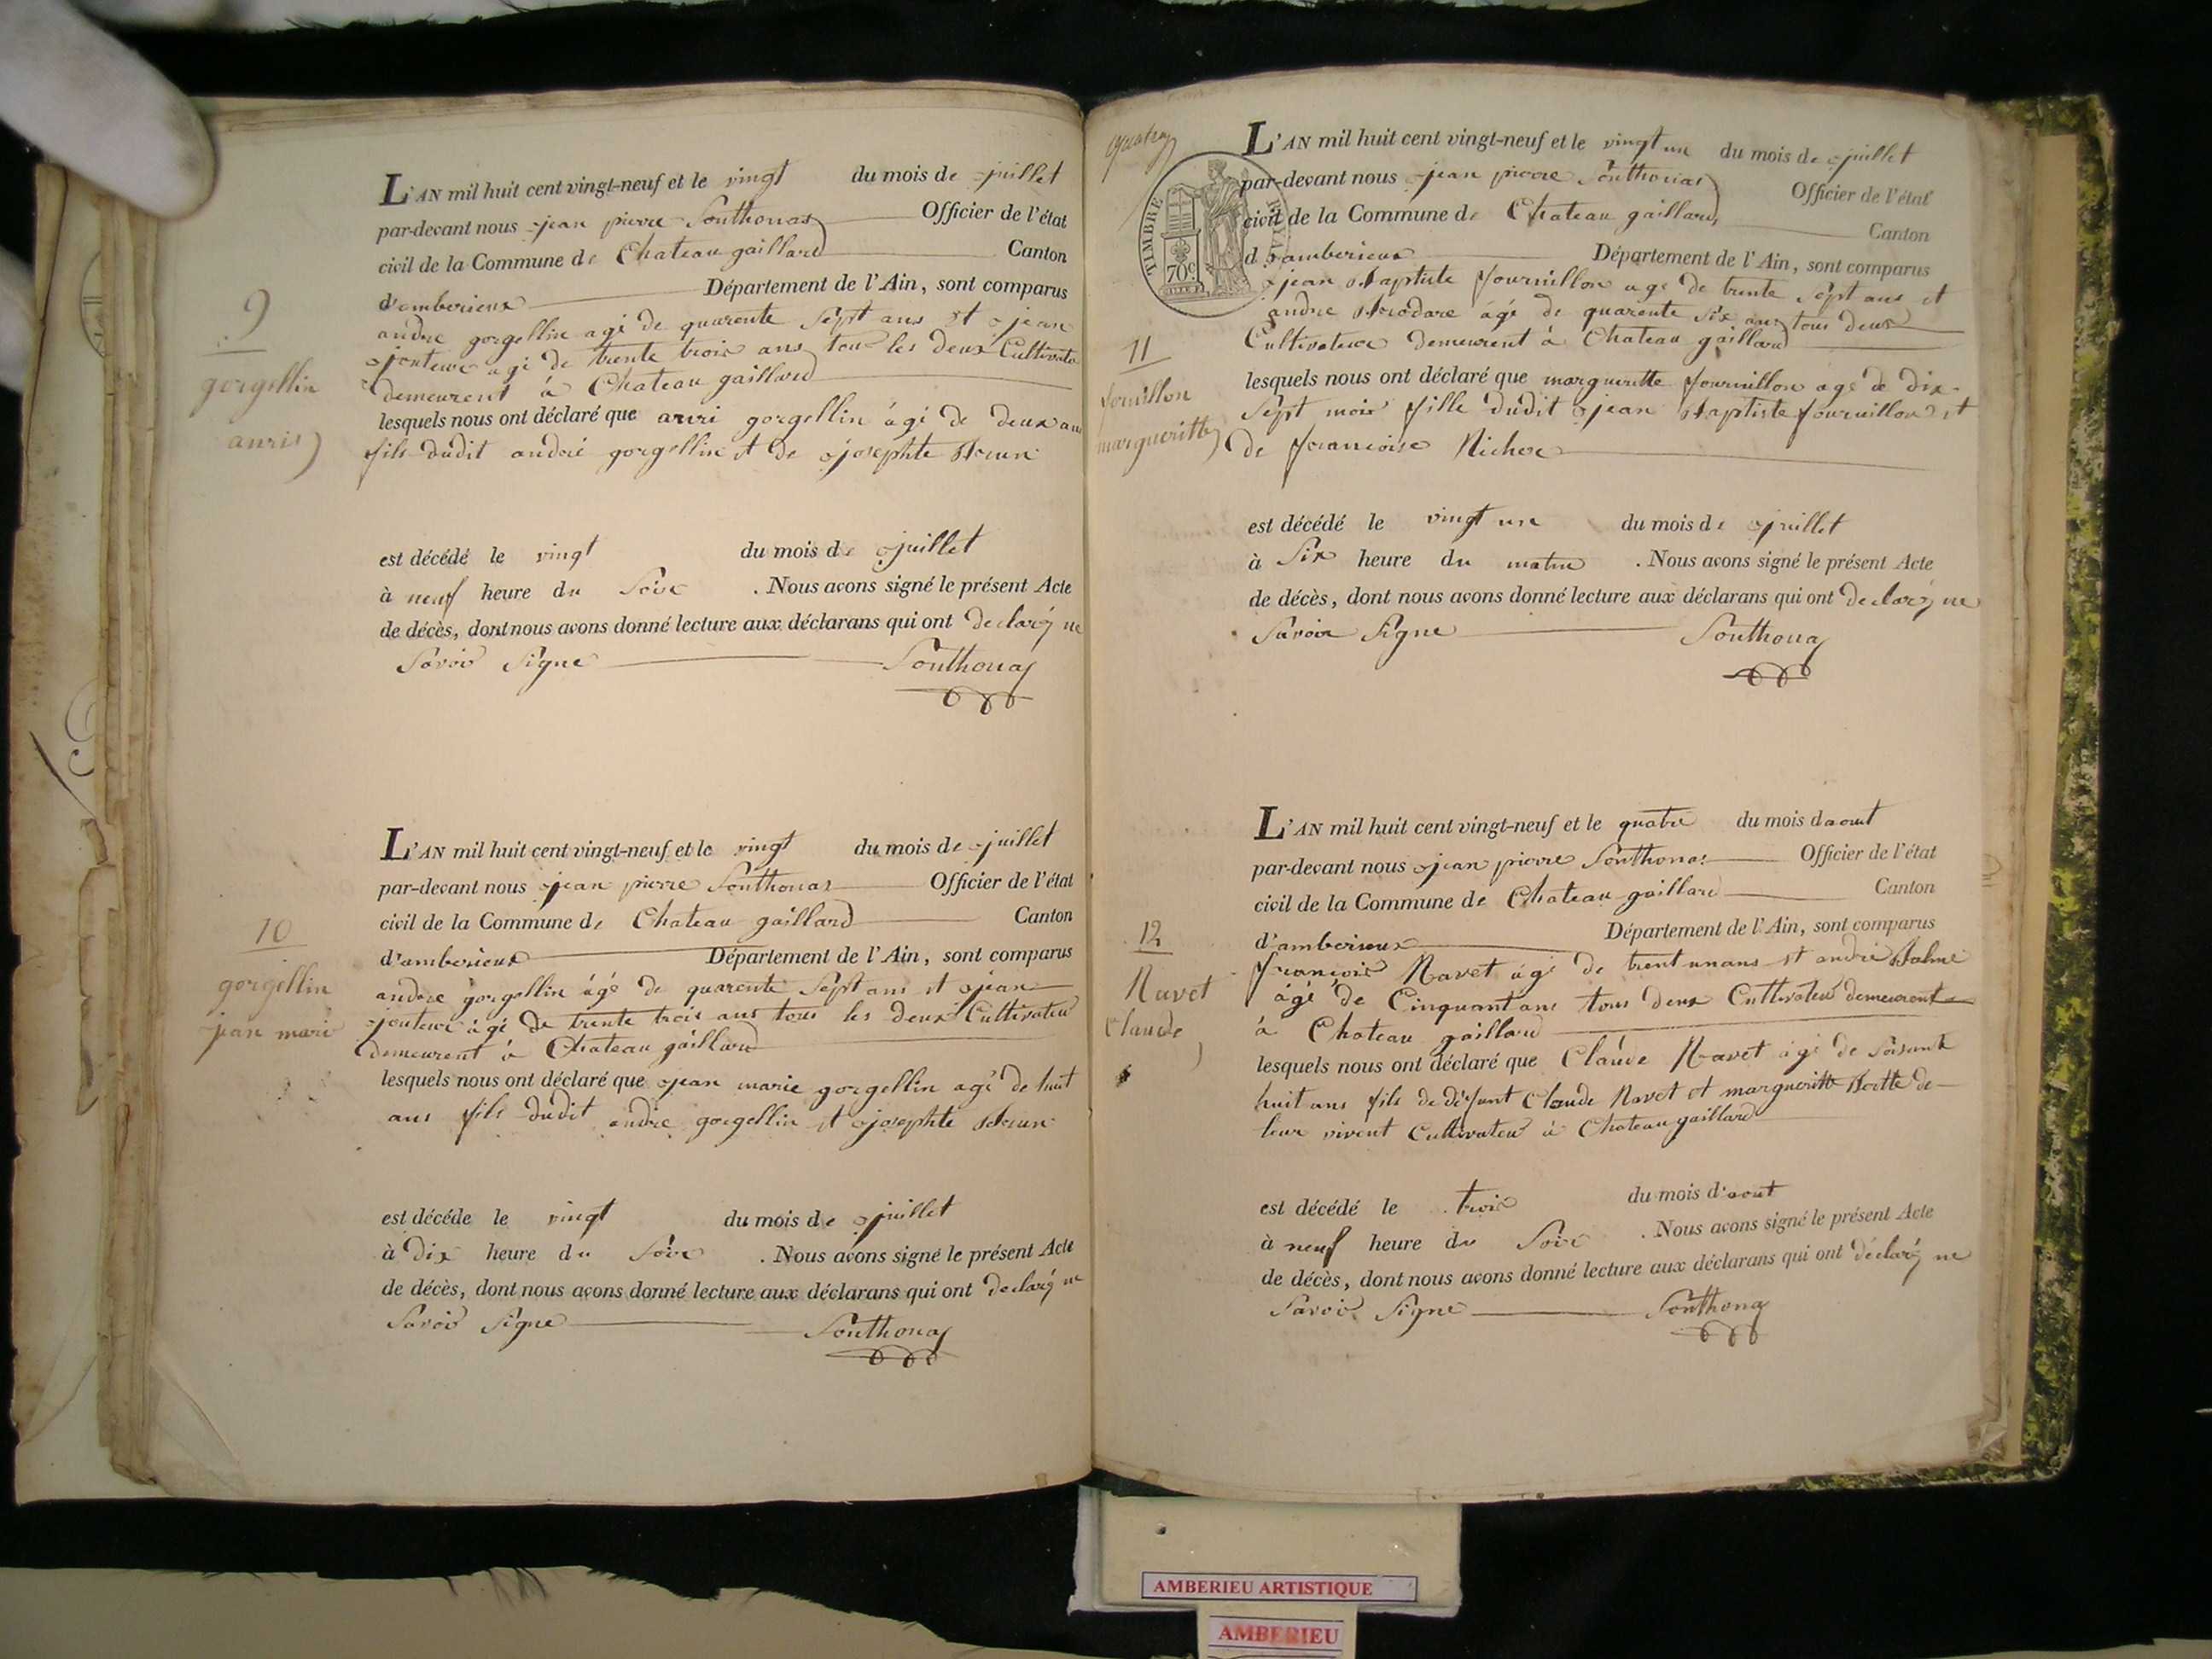 9
gorgellin
anris
L'AN mil huit cent vingt-neuf et le vingt du mois de juillet
par-devant nous jean pierre Southonas Officier de l'état
civil de la Commune de Chateau gaillard Canton
d'emberieux Département de l'Ain, sont comparus
andre gorgellin agé de quarente Sept ans et jean
jenteur agé de trente trois ans tous les deux Cultivate
demeurent à Chateau gaillard
lesquels nous ont déclaré que anri gorgellin âgé de deux ans
fils dudit andré gorgellin et de josephte Brun
est décédé le vingt du mois de juillet
à neuf heure du Soir . Nous avons signé le présent Acte
de décès, dont nous avons donné lecture aux déclarans qui ont declaré ne
Savoir Signe Southonas
10
gorgellin
jean mari
L'AN mil huit cent vingt-neuf et le vingt du mois de juillet
par-devant nous jean pierre Southonas Officier de l'état
civil de la Commune de Chateau gaillard Canton
d'amberieux Département de l'Ain, sont comparus
andre gorgellin âgé de quarente Sept ans et jean
jenteur âgé de trente trois ans tous les deux Cultivateur
demeurent à Chateau gaillard
lesquels nous ont déclaré que jean marie gorgellin agé de huit
ans fils dudit andré gorgellin et josephte Brun
est décéde le vingt du mois de juillet
à Dix heure du Soir . Nous avons signé le présent Acte
de décès, dont nous avons donné lecture aux déclarans qui ont declaré ne
Savoir Signe Southonas
TIMBRE
70c.
11
fournillon
margueritte
L'AN mil huit cent vingt-neuf et le vingt un du mois de juillet
par-devant nous jean pierre Southonas Officier de l'état
civil de la Commune de Chateau gaillard Canton
d'amberieux Département de l'Ain, sont comparus
jean Baptiste fournillon age de trente Sept ans et
andre Brodare âgé de quarente Six ans tous deux
Cultivateur demeurent à Chateau gaillard
lesquels nous ont déclaré que margueritte fournillon age de dix-
Sept mois fille dudit jean Baptiste fournillon et
de francoise Nicher
est décédé le vingt un du mois de juillet
à Six heure du matin . Nous avons signé le présent Acte
de décès, dont nous avons donné lecture aux déclarans qui ont declaré ne
Savoir Signe Southonas
12
Navet
Claude
L'AN mil huit cent vingt-neuf et le quatre du mois daout
par-devant nous jean pierre Southonas Officier de l'état
civil de la Commune de Chateau gaillard Canton
d'amberieux Département de l'Ain, sont comparus
françois Navet âgé de trent unans et andré Balme
âgé de Cinquant ans tous deux Cultivateur demeurent
à Chateau gaillard
lesquels nous ont déclaré que Claude Navet âgé de Soisante
huit ans fils de défunt Claude Navet et margueritte Bertte de
leur vivent Cultivateur à Chateau gaillard
est décédé le trois du mois d'aout
à neuf heure du Soir . Nous avons signé le présent Acte
de décès, dont nous avons donné lecture aux déclarans qui ont déclaré ne
Savoir Signe Southonas
AMBERIEU ARTISTIQUE
AMBERIEU